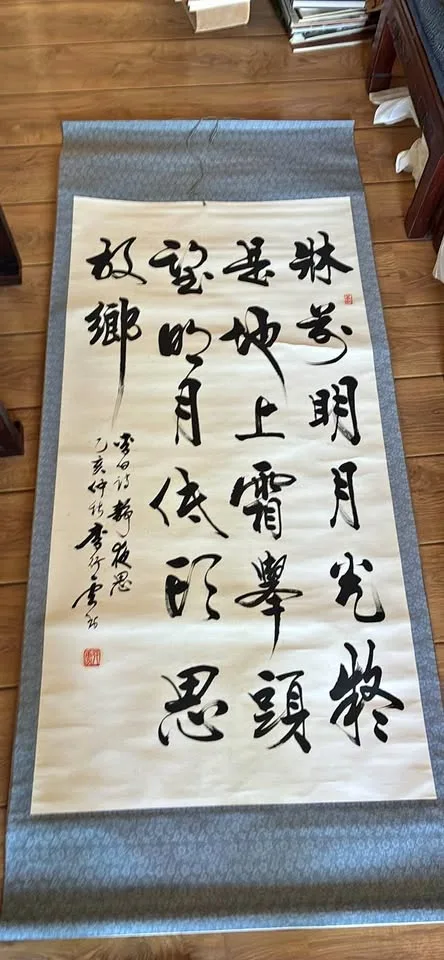 牀前明月光疑
是地上霜舉頭
望明月低頭思
故鄉
李白詩靜夜思
乙亥仲秋